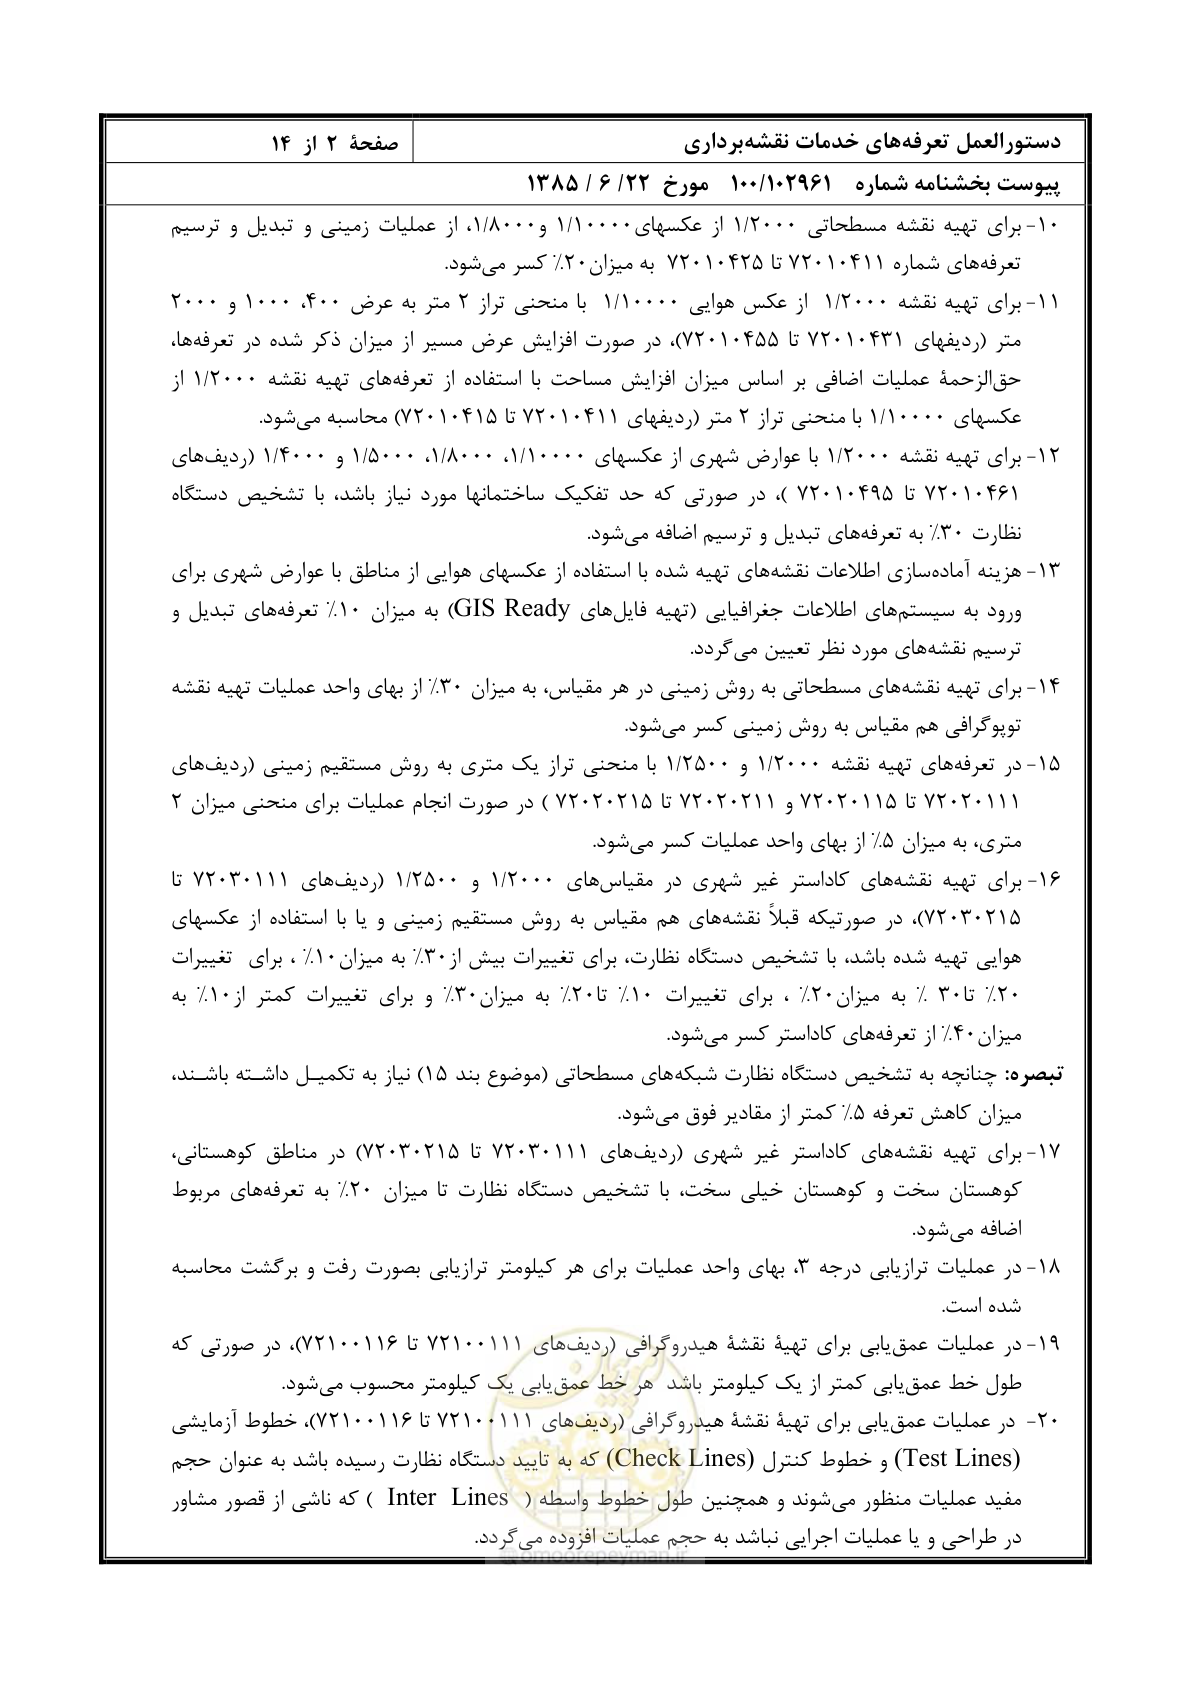 دستورالعمل تعرفه‌های خدمات نقشه‌برداری
صفحۀ ۲ از ۱۴
پیوست بخشنامه شماره ۱۰۰/۱۰۲۹۶۱ مورخ ۲۲/ ۶ / ۱۳۸۵
۱۰- برای تهیه نقشه مسطحاتی ۱/۲۰۰۰ از عکسهای۱/۱۰۰۰۰ و۱/۸۰۰۰، از عملیات زمینی و تبدیل و ترسیم
تعرفه‌های شماره ۷۲۰۱۰۴۱۱ تا ۷۲۰۱۰۴۲۵ به میزان۲۰٪ کسر می‌شود.
۱۱- برای تهیه نقشه ۱/۲۰۰۰ از عکس هوایی ۱/۱۰۰۰۰ با منحنی تراز ۲ متر به عرض ۴۰۰، ۱۰۰۰ و ۲۰۰۰
متر (ردیفهای ۷۲۰۱۰۴۳۱ تا ۷۲۰۱۰۴۵۵)، در صورت افزایش عرض مسیر از میزان ذکر شده در تعرفه‌ها،
حق‌الزحمۀ عملیات اضافی بر اساس میزان افزایش مساحت با استفاده از تعرفه‌های تهیه نقشه ۱/۲۰۰۰ از
عکسهای ۱/۱۰۰۰۰ با منحنی تراز ۲ متر (ردیفهای ۷۲۰۱۰۴۱۱ تا ۷۲۰۱۰۴۱۵) محاسبه می‌شود.
۱۲- برای تهیه نقشه ۱/۲۰۰۰ با عوارض شهری از عکسهای ۱/۱۰۰۰۰، ۱/۸۰۰۰، ۱/۵۰۰۰ و ۱/۴۰۰۰ (ردیف‌های
۷۲۰۱۰۴۶۱ تا ۷۲۰۱۰۴۹۵ )، در صورتی که حد تفکیک ساختمانها مورد نیاز باشد، با تشخیص دستگاه
نظارت ۳۰٪ به تعرفه‌های تبدیل و ترسیم اضافه می‌شود.
۱۳- هزینه آماده‌سازی اطلاعات نقشه‌های تهیه شده با استفاده از عکسهای هوایی از مناطق با عوارض شهری برای
ورود به سیستم‌های اطلاعات جغرافیایی (تهیه فایل‌های GIS Ready) به میزان ۱۰٪ تعرفه‌های تبدیل و
ترسیم نقشه‌های مورد نظر تعیین می‌گردد.
۱۴- برای تهیه نقشه‌های مسطحاتی به روش زمینی در هر مقیاس، به میزان ۳۰٪ از بهای واحد عملیات تهیه نقشه
توپوگرافی هم مقیاس به روش زمینی کسر می‌شود.
۱۵- در تعرفه‌های تهیه نقشه ۱/۲۰۰۰ و ۱/۲۵۰۰ با منحنی تراز یک متری به روش مستقیم زمینی (ردیف‌های
۷۲۰۲۰۱۱۱ تا ۷۲۰۲۰۱۱۵ و ۷۲۰۲۰۲۱۱ تا ۷۲۰۲۰۲۱۵ ) در صورت انجام عملیات برای منحنی میزان ۲
متری، به میزان ۵٪ از بهای واحد عملیات کسر می‌شود.
۱۶- برای تهیه نقشه‌های کاداستر غیر شهری در مقیاس‌های ۱/۲۰۰۰ و ۱/۲۵۰۰ (ردیف‌های ۷۲۰۳۰۱۱۱ تا
۷۲۰۳۰۲۱۵)، در صورتیکه قبلاً نقشه‌های هم مقیاس به روش مستقیم زمینی و یا با استفاده از عکسهای
هوایی تهیه شده باشد، با تشخیص دستگاه نظارت، برای تغییرات بیش از۳۰٪ به میزان۱۰٪ ، برای تغییرات
۲۰٪ تا۳۰ ٪ به میزان۲۰٪ ، برای تغییرات ۱۰٪ تا۲۰٪ به میزان۳۰٪ و برای تغییرات کمتر از۱۰٪ به
میزان۴۰٪ از تعرفه‌های کاداستر کسر می‌شود.
تبصره: چنانچه به تشخیص دستگاه نظارت شبکه‌های مسطحاتی (موضوع بند ۱۵) نیاز به تکمیل داشته باشند،
میزان کاهش تعرفه ۵٪ کمتر از مقادیر فوق می‌شود.
۱۷- برای تهیه نقشه‌های کاداستر غیر شهری (ردیف‌های ۷۲۰۳۰۱۱۱ تا ۷۲۰۳۰۲۱۵) در مناطق کوهستانی،
کوهستان سخت و کوهستان خیلی سخت، با تشخیص دستگاه نظارت تا میزان ۲۰٪ به تعرفه‌های مربوط
اضافه می‌شود.
۱۸- در عملیات ترازیابی درجه ۳، بهای واحد عملیات برای هر کیلومتر ترازیابی بصورت رفت و برگشت محاسبه
شده است.
۱۹- در عملیات عمق‌یابی برای تهیۀ نقشۀ هیدروگرافی (ردیف‌های ۷۲۱۰۰۱۱۱ تا ۷۲۱۰۰۱۱۶)، در صورتی که
طول خط عمق‌یابی کمتر از یک کیلومتر باشد هر خط عمق‌یابی یک کیلومتر محسوب می‌شود.
۲۰- در عملیات عمق‌یابی برای تهیۀ نقشۀ هیدروگرافی (ردیف‌های ۷۲۱۰۰۱۱۱ تا ۷۲۱۰۰۱۱۶)، خطوط آزمایشی
(Test Lines) و خطوط کنترل (Check Lines) که به تایید دستگاه نظارت رسیده باشد به عنوان حجم
مفید عملیات منظور می‌شوند و همچنین طول خطوط واسطه ( Inter Lines ) که ناشی از قصور مشاور
در طراحی و یا عملیات اجرایی نباشد به حجم عملیات افزوده می‌گردد.
@omoorepeyman.ir